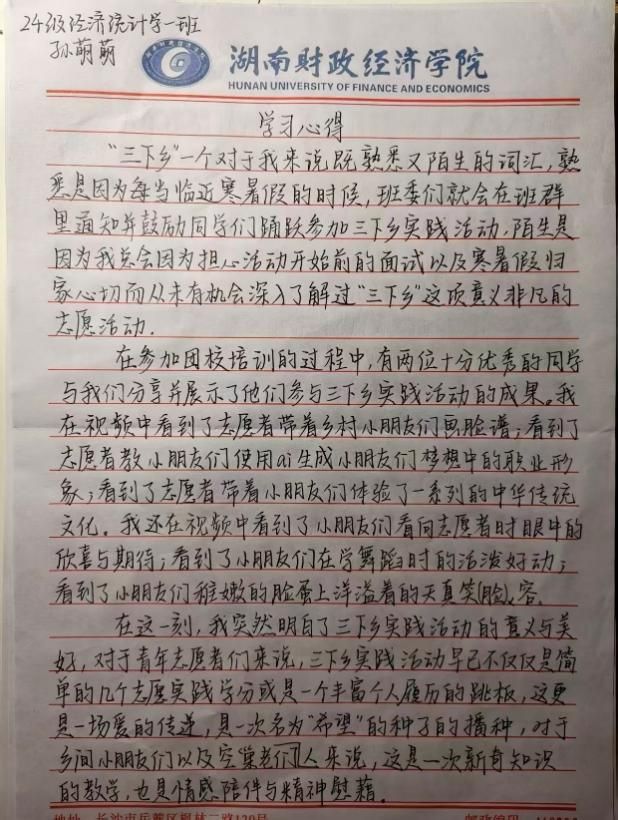 24级经济统计学一班
孙萌萌
湖南财政经济学院
HUNAN UNIVERSITY OF FINANCE AND ECONOMICS
学习心得
"三下乡"一个对于我来说既熟悉又陌生的词汇，熟
悉是因为每当临近寒暑假的时候，班委们就会在班群
里通知并鼓励同学们踊跃参加三下乡实践活动，陌生是
因为我总会因为担心活动开始前的面试以及寒暑假归
家心切而从未有机会深入了解过"三下乡"这项意义非凡的
志愿活动．
在参加团校培训的过程中，有两位十分优秀的同学
与我们分享并展示了他们参与三下乡实践活动的成果。我
在视频中看到了志愿者带着乡村小朋友们画脸谱；看到了
志愿者教小朋友们使用ai生成小朋友们梦想中的职业形
象；看到了志愿者带着小朋友们体验了一系列的中华传统
文化。我还在视频中看到了小朋友们看向志愿者时眼中的
欣喜与期待；看到了小朋友们在学舞蹈时的活泼好动；
看到了小朋友们稚嫩的脸蛋上洋溢着的天真笑容．
在这一刻，我突然明白了三下乡实践活动的意义与美
好，对于青年志愿者们来说，三下乡实践活动早已不仅仅是简
单的几个志愿实践学分或是一个丰富个人履历的跳板，这更
是一场爱的传递，是一次名为"希望"的种子的播种，对于
乡间小朋友们以及空巢老人来说，这是一次新奇知识
的教学，也是情感陪伴与精神慰藉．